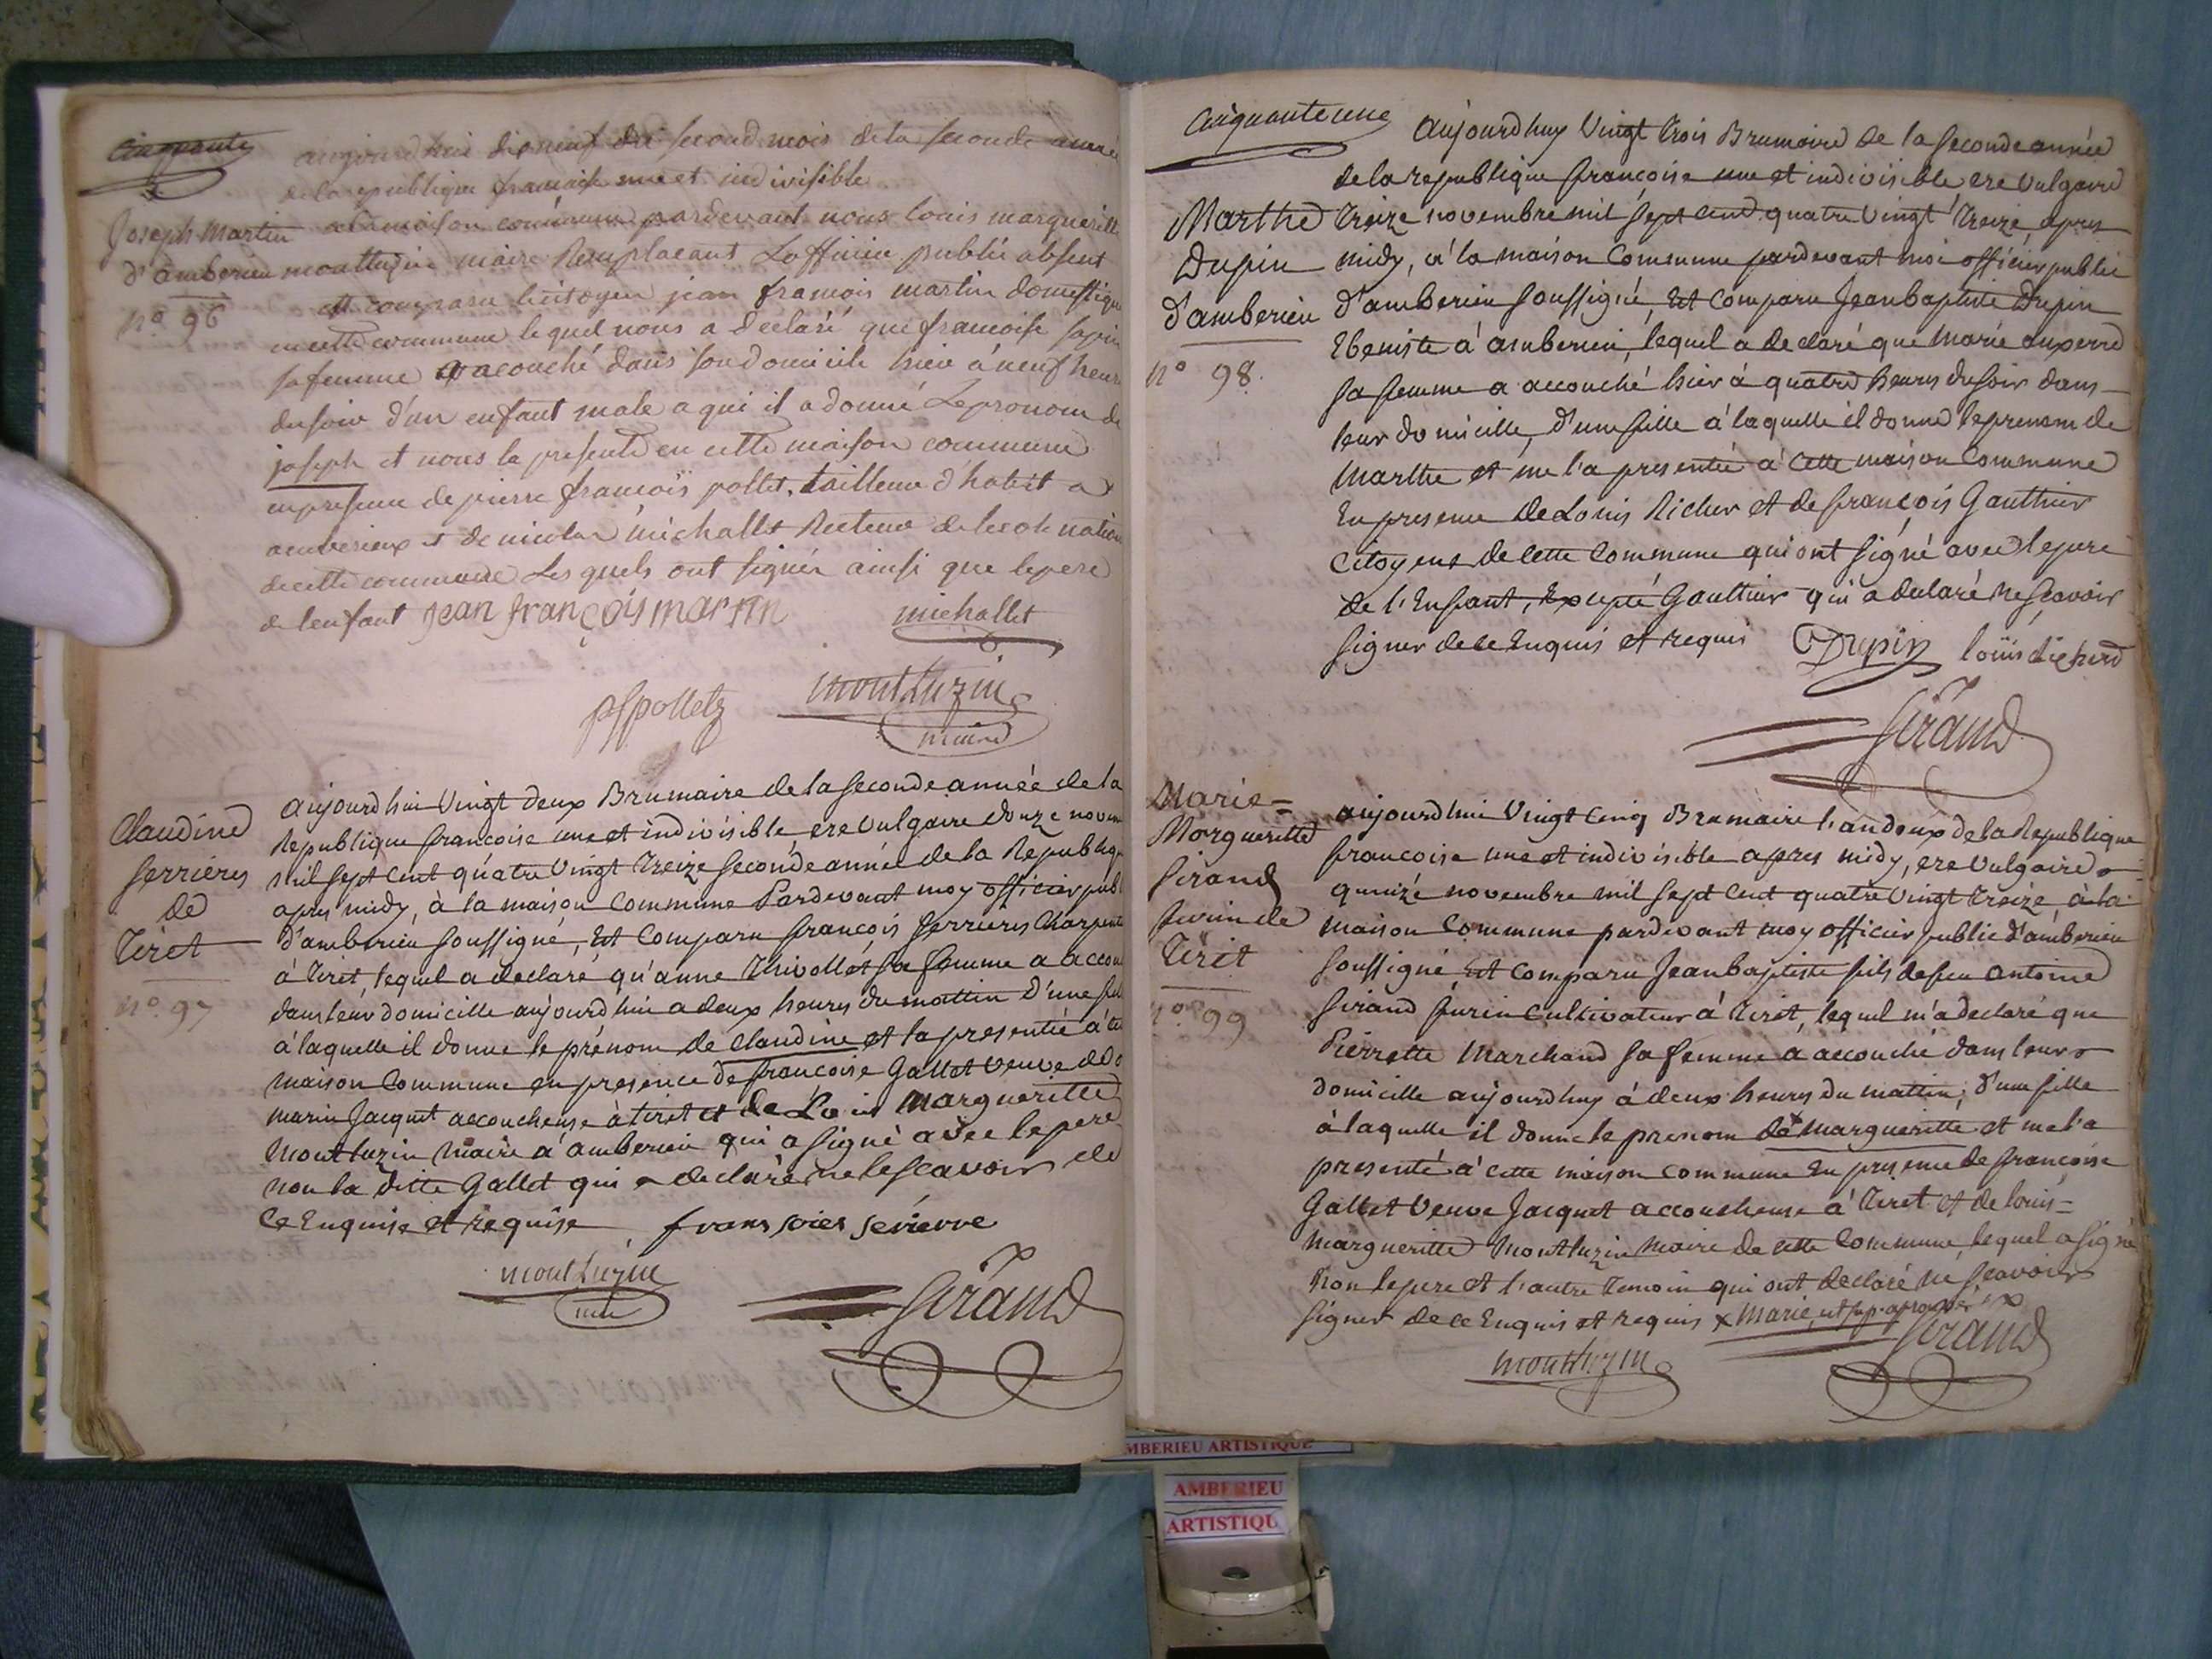 cinquante
aujourd'hui dixneuf du second mois de la seconde anné
de la republique francaise une et indivisible
Joseph Martin
d'amberieu
n° 96
a la maison commune pardevant nous louis margueritte
montluzin maire Remplacant Lofficier public absent
est comparu le citoyen jean francois martin domestique
en cette commune lequel nous a déclaré que francoise
sa femme a acouché dans son domicile hier à neuf heur
du soir d'un enfant male a qui il a donné Le pronom de
joseph et nous la presenté en cette maison commune
en presence de pierre francois pollet tailleur d'habit a
amberieux et de nicolas michallet Recteur de lecole nation
de cette commune Les quels ont signés ainsi que le pere
de lenfant jean françois martin michallet
pfpollet montluzin
maire
Claudine
ferrieres
de
Tiret
n° 97
aujourdhui Vingt deux Brumaire de la seconde année de la
Republique francoise une et indivisible ere Vulgaire douze novem
mil sept cent quatre Vingt Treize seconde année de la Republiq
apres midy, à la maison Commune Pardevant moy officier publ
d'amberieu soussigné, Est Comparu francois ferrieres Charpent
à Tiret, lequel a declaré qu'anne Thivollet sa femme a accou
dans leur domicille aujourd'hui a deux heures du mattin d'une fil
à laquelle il donne le prénom de Claudine et la presentée à
maison Commune en presence de francoise Gallet veuve de
marin Jacquet accoucheuse à tiret et de Louis Margueritte
Montluzin Maire a amberieu qui a signé avec le pere
non la ditte Gallet qui a declaré ne le scavoir de
Ce Enquise et requise fransoies
montluzin
Girand
cinquante une
Marthe
Dupin
d'amberieu
n° 98.
Aujourd'huy Vingt Trois Brumaire de la seconde année
de la republique francoise une et indivisible ere vulgaire
Treize novembre mil sept cend quatre Vingt Treize, apres
midy, à la maison Commune pardevant moi officier public
d'amberieu soussigné, Est Comparu Jean baptiste Dupin
Ebeniste à amberieu, lequel a declaré que Marie
sa femme a accouché hier à quatre heures du soir dans
leur domicille, d'une fille à laquelle il donne le prenom de
Marthe et me l'a presentée à Cette maison Commune
En presence de Louis Richer et de françois Gauthier
Citoyens de Cette Commune qui ont signé avec le pere
de l'Enfant, Excepté Gauthier qui a declaré ne scavoir
signer de ce Enquis et requis Dupin
Girand
Marie=
Margueritte
Girand
de
Tiret
n° 99
aujourdhui Vingt Cinq Brumaire l'an deux de la Republique
francoise une et indivisible apres midy, ere Vulgaire
quinze novembre mil sept cent quatre Vingt Treize, à la
maison Commune pardevant moy officier public d'amberieu
soussigné, Est Comparu Jean baptiste fils de feu antoine
Girand Cultivateur à Tiret, lequel m'a declaré que
Pierrette Marchand sa femme a accouché dans leur
domicille aujourdhuy à deux heures du mattin, d'une fille
à laquelle il donne le prenom de x marguerite et me l'a
presenté à cette maison commune En presence de francoise
Gallet Veuve Jacquet accoucheuse à Tiret et de louis=
margueritte Montluzin Maire de cette Commune, lequel a signé
Non le pere et l'autre Temoin qui ont declaré ne scavoir
signer de ce Enquis et requis x Marie,
montluzin Girand
AMBERIEU ARTISTIQUE
AMBERIEU
ARTISTIQU